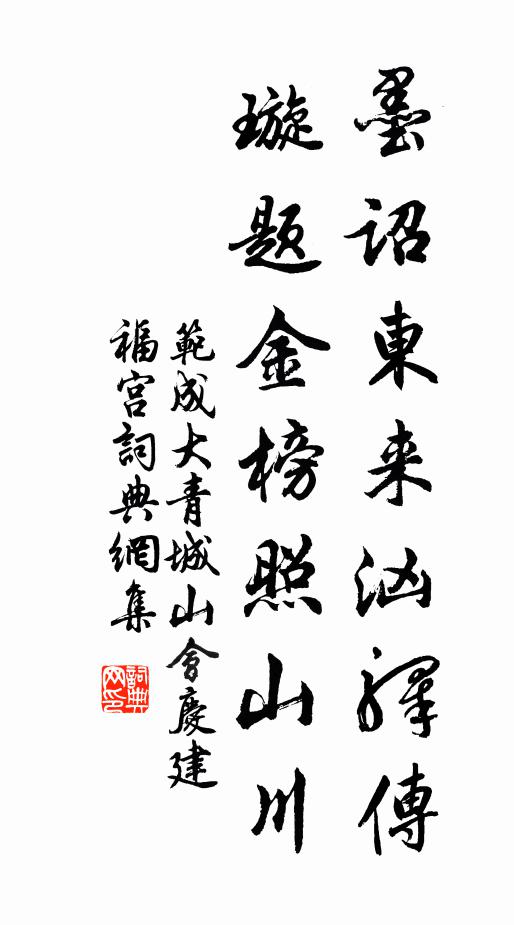 墨詔東来汹驛傳
璇題金榜照山川
範成大青城山會慶建
福宫詞典網集
詞典网印